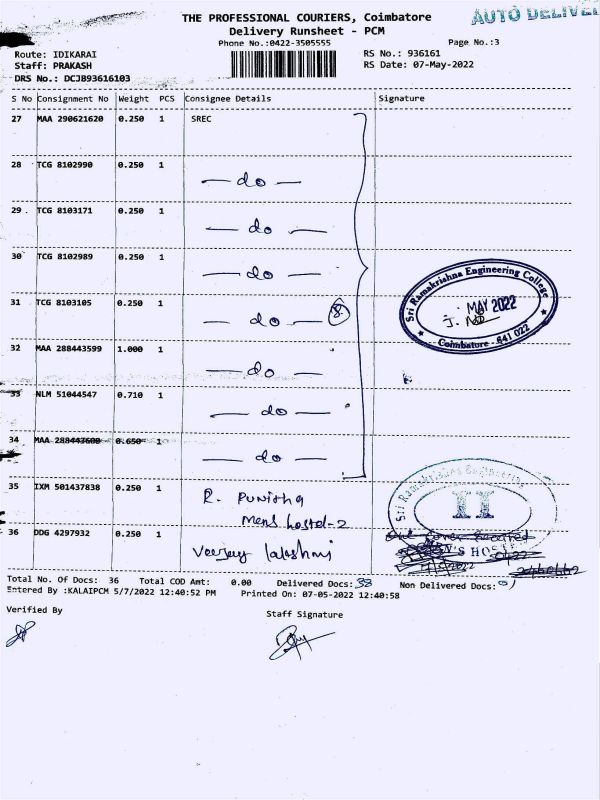 THE PROFESSIONAL COURIERS, Coimbatore
Delivery Runsheet - PCM
Phone No.:0422-3505555
Page No.:3
Route: IDIKARAI
RS No.: 936161
Staff: PRAKASH
RS Date: 07-May-2022
DRS No.: DCJB93616103
S No Consignment No Weight PCS Consignee Details Signature
27 MAA 290621620 0.250 1 SREC
28 TCG 8102990 0.250 1
— do —
29. TCG 8103171 0.250 1
— do —
30 TCG 8102989 0.250 1
— do —
31 TCG 8103105 0.250 1
— do — 8
Sri Ramakrishna Engineering College
MAY 2022
Coimbatore - 641 022
32 MAA 288443599 1.000 1
— do —
33 NLM 51044547 0.710 1
— do —
34 MAA 288443600 0.650 1
— do —
35 IXM 501437838 0.250 1 R. Punitha
Mens hostel-2
Sri Ramakrishna Engineering
II
36 DDG 4297932 0.250 1
Total No. Of Docs: 36 Total COD Amt: 0.00 Delivered Docs: Non Delivered Docs:
Entered By :KALAIPCM 5/7/2022 12:40:52 PM Printed On: 07-05-2022 12:40:58
Verified By
Staff Signature